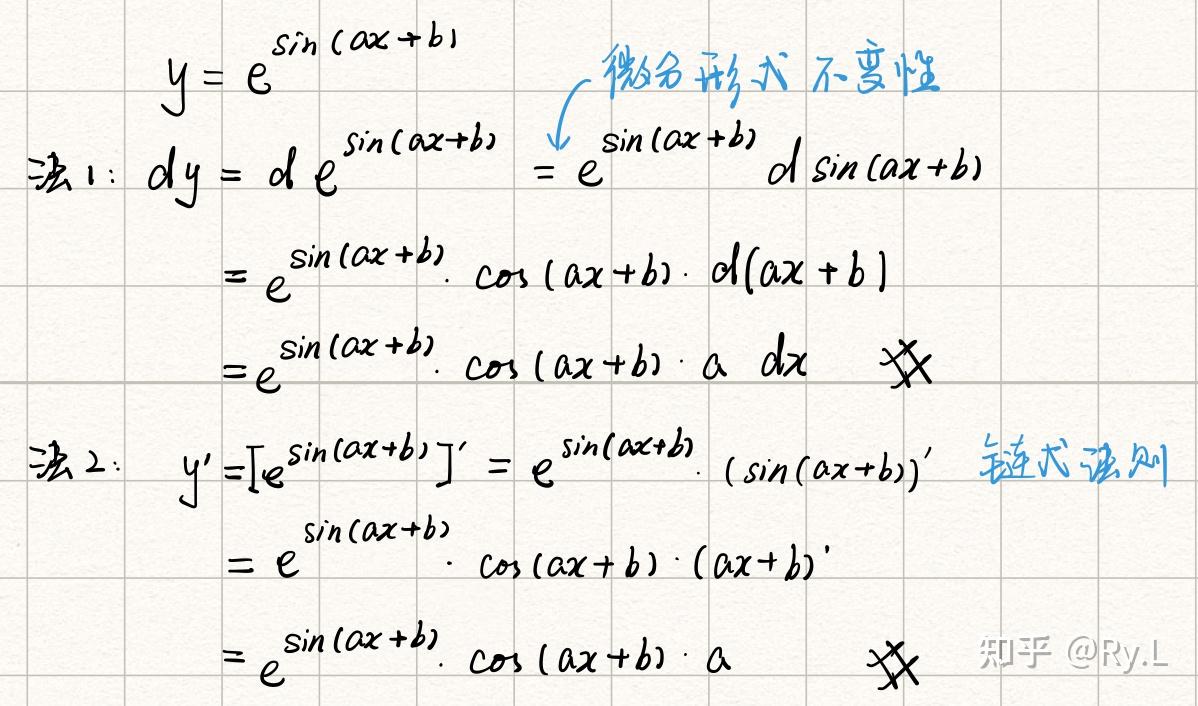 y = e^{sin(ax+b)}
微分形式不变性
法1: dy = d e^{sin(ax+b)} = e^{sin(ax+b)} d sin(ax+b)
= e^{sin(ax+b)} · cos(ax+b) · d(ax+b)
= e^{sin(ax+b)} · cos(ax+b) · a dx #
法2: y' = [e^{sin(ax+b)}]' = e^{sin(ax+b)} · (sin(ax+b))' 链式法则
= e^{sin(ax+b)} · cos(ax+b) · (ax+b)'
= e^{sin(ax+b)} · cos(ax+b) · a #
知乎 @Ry.L